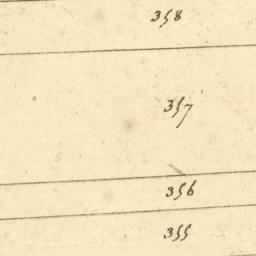 358
357
356
355